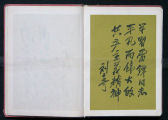 学习雷锋同志
平凡而伟大的
共产主义精神
刘少奇